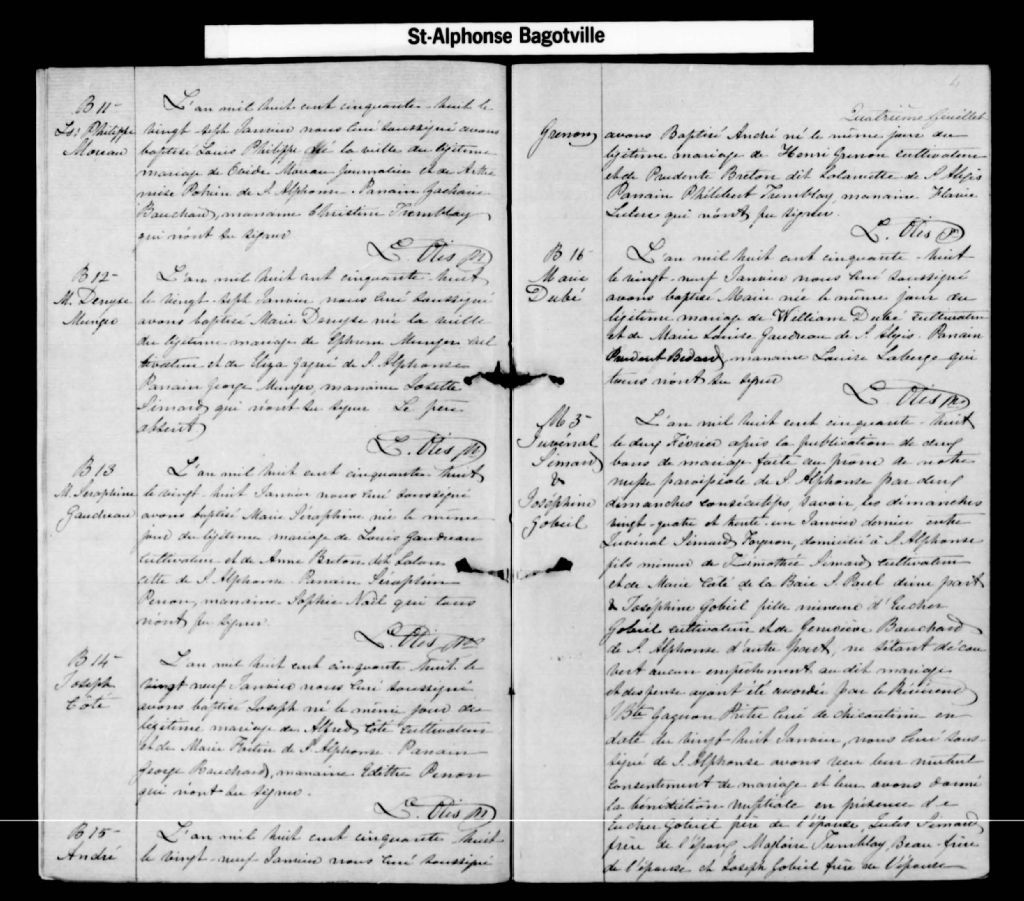 St-Alphonse Bagotville
B 11
Ls: Philippe
Moreau
L'an mil huit cent cinquante-huit le
vingt-sept Janvier nous Curé soussigné avons
baptisé Louis Philippe né la veille du légitime
mariage de Ovide Moreau Journalier et de Arthé
mise Potvin de S. Alphonse. Parrain Zacharie
Bouchard, marraine Christine Tremblay
qui n'ont su signer
L. Otis Ptr
B 12
M. Denyse
Munger
L'an mil huit cent cinquante-huit
le vingt-sept Janvier nous Curé soussigné
avons baptisé Marie Denyse née la veille
du légitime mariage de Ephrem Munger cul
tivateur et de Eliza Gagné de S. Alphonse
Parrain George Munger, marraine Josette
Simard qui n'ont su signer. Le père
absent
L. Otis Ptr
B 13
M. Seraphine
Gaudreau
L'an mil huit cent cinquante-huit
le vingt-huit Janvier nous Curé soussigné
avons baptisé Marie Séraphine née le même
jour du légitime mariage de Louis Gaudreau
cultivateur et de Anne Breton dit Lalan
cette de S. Alphonse Parrain Seraphin
Penon, marraine Sophie Noël qui tous
n'ont pu signer
L. Otis Ptr
B 14
Joseph
Côté
L'an mil huit cent cinquante huit le
vingt neuf Janvier nous Curé soussigné
avons baptisé Joseph né le même jour du
légitime mariage de Alfred Coté Cultivateur
et de Marie Fortin de S. Alphonse. Parrain
George Bouchard, marraine Penon
qui n'ont su signer.
L. Otis Ptr
B 15
André
L'an mil huit cent cinquante huit
le vingt-neuf Janvier nous Curé soussigné
4
Quatrième feuillet
Grenon
avons Baptisé André né le même jour du
légitime mariage de Henri Grenon cultivateur
et de Prudente Breton dit Lalancette de S. Alexis
Parrain Philibert Tremblay, marraine Flavie
qui n'ont pu signer
L. Otis Ptr
B 16
Marie
Dubé
L'an mil huit cent cinquante-huit
le vingt-neuf Janvier nous Curé soussigné
avons baptisé Marie née le même jour du
légitime mariage de William Dubé cultivateur
et de Marie Louise Gaudreau de S. Alexis. Parrain
Prudent Bedard, marraine Louise Laberge qui
tous n'ont su signer
L. Otis Ptr
M 3
Juvénal
Simard
&
Joséphine
Gobeil
L'an mil huit cent cinquante-huit
le deux Février après la publication de deux
bans de mariage faite au prône de notre
messe paroissiale de S. Alphonse par deux
dimanches consécutifs, savoir, les dimanches
vingt-quatre et trente-un Janvier dernier entre
Juvénal Simard, domicilié à S. Alphonse
fils mineur de Thimothée Simard cultivateur
et de Marie Coté de la Baie S. Paul d'une part
& Joséphine Gobeil fille mineure d'Eucher
Gobeil cultivateur et de Geneviève Bouchard
de S. Alphonse d'autre part, ne s'étant décou
vert aucun empêchement au dit mariage
et dispense ayant été accordée par le Révérend
J Bte Gagnon Prêtre Curé de Chicoutimi en
date du vingt huit Janvier, nous Curé sous-
signé de S. Alphonse avons reçu leur mutuel
consentement de mariage et leur avons donné
la bénédiction nuptiale en présence de
Eucher Gobeil père de l'épouse, Jules Simard
frère de l'époux, Magloire Tremblay, Beau-frère
de l'épouse et Joseph Gobeil frère de l'épouse